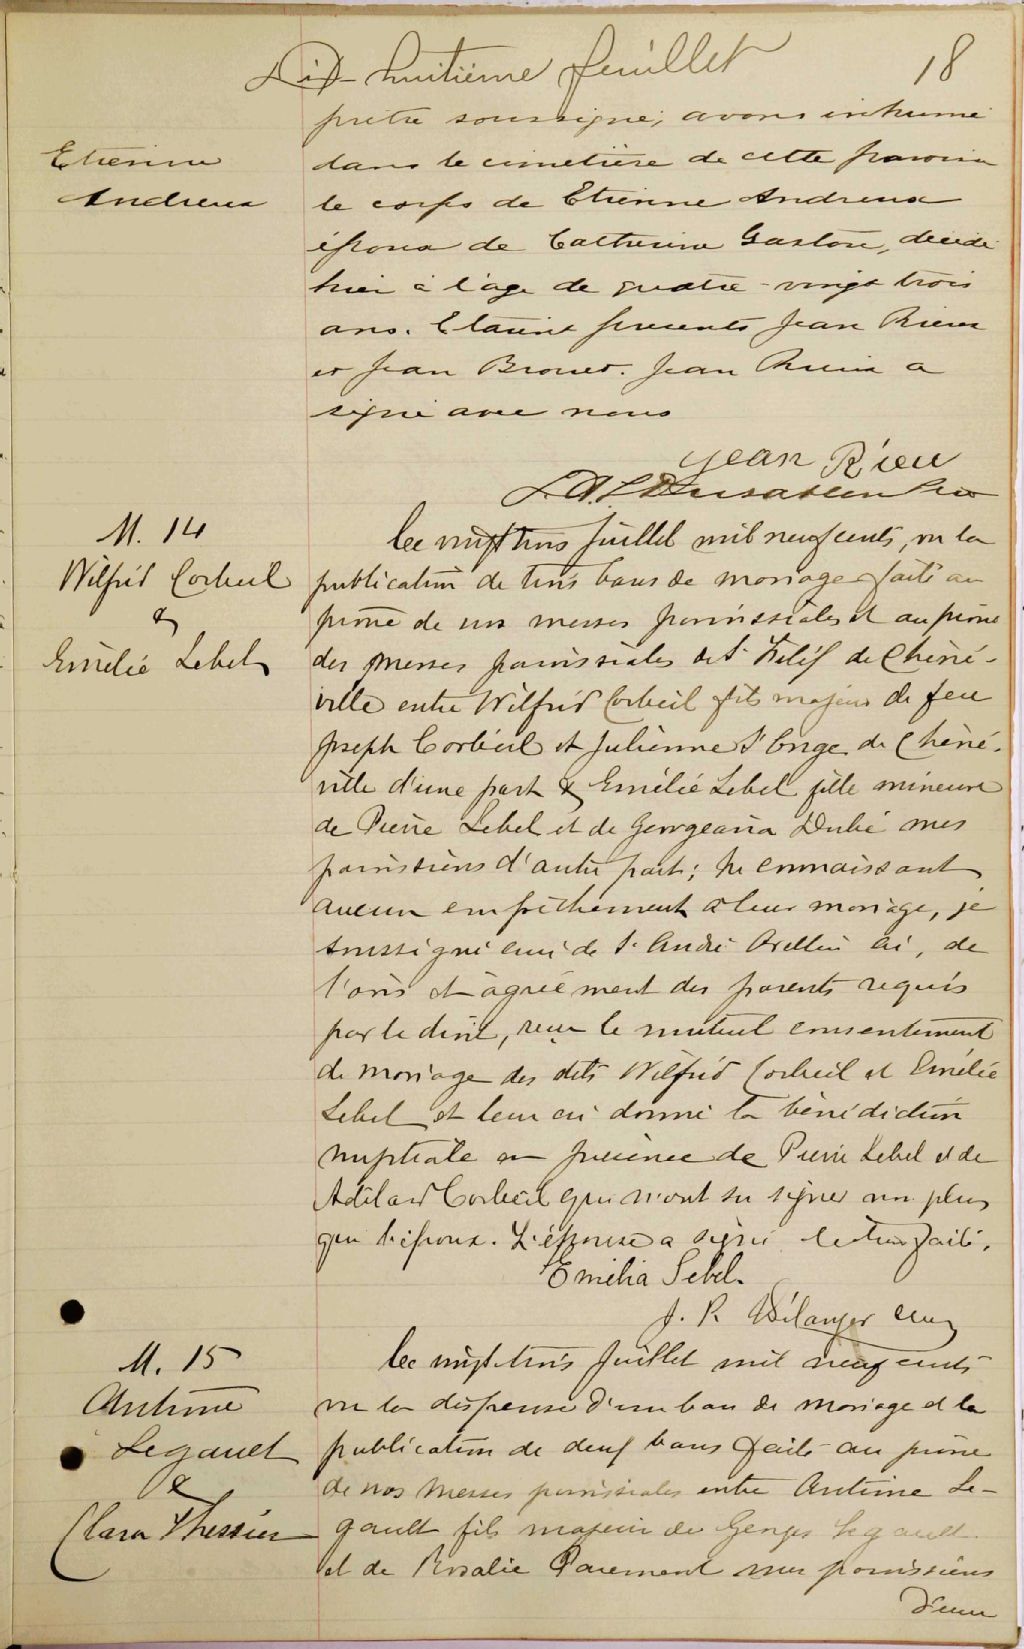 Dix-huitième feuillet 18
prêtre soussigné, avons inhumé
Etienne
dans le cimetière de cette paroisse
Andreux
le corps de Etienne Andreux
époux de Catherine Gaston, décédé
hier à l'age de quatre-vingt trois
ans. Etaient présents Jean Rieux
et Jean Brouet. Jean Rieux a
signé avec nous
Jean Rieu
M. 14
Wilfrid Corbeil
&
Emélie Lebel
Le vingt trois Juillet mil neuf cents, vu la
publication de trois bans de mariage faite au
prône de nos messes paroissiales et au prône
des messes paroissiales de St Félix de Chéné-
ville entre Wilfrid Corbeil fils majeur de feu
Joseph Corbeil et Julienne St Onge de Chéné-
ville d'une part & Emélie Lebel fille mineure
de Pierre Lebel et de Georgeana Dubé mes
paroissiens d'autre part; ne connaissant
aucun empêchement à leur mariage, je
soussigné curé de St André Avellin ai, de
l'avis et agrément des parents requis
par le droit, reçu le mutuel consentement
de mariage des dits Wilfrid Corbeil et Emélie
Lebel et leur ai donné la bénédiction
nuptiale en présence de Pierre Lebel et de
Adélard Corbeil qui n'ont su signer non plus
que l'époux. L'épouse a signé lecture faite.
Emélia Lebel.
J. P. Bélanger curé
M. 15
Antoine
Legault
&
Clara Thessier
Le vingt-trois Juillet mil neuf cents
vu la dispense d'un ban de mariage et la
publication de deux bans faite au prône
de nos messes paroissiales entre Antoine Le-
gault fils majeur de Georges Legault
et de Rosalie Parement mes paroissiens
d'une